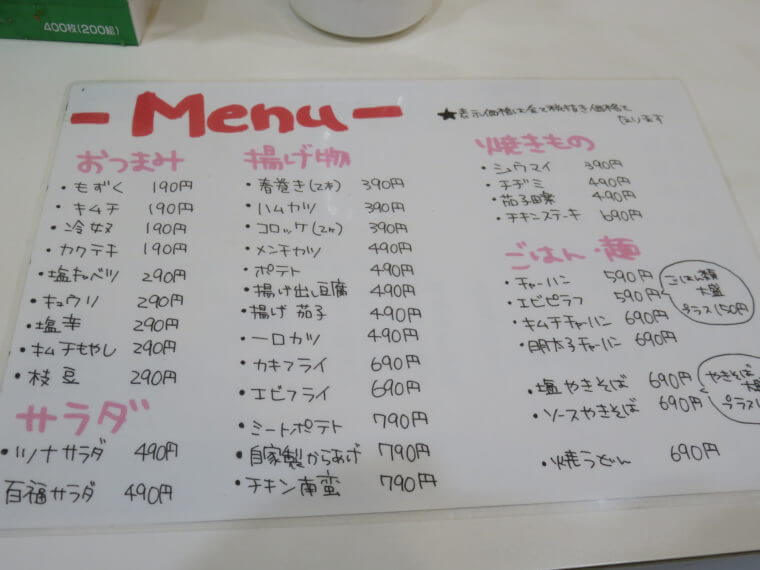 400枚(200組)
- Menu -
★表示価格は全て税抜き価格と
なります
おつまみ
・もずく 190円
・キムチ 190円
・冷奴 190円
・カクテキ 190円
・塩キャベツ 290円
・キュウリ 290円
・塩辛 290円
・キムチもやし 290円
・枝豆 290円
サラダ
・ツナサラダ 490円
百福サラダ 490円
揚げ物
・春巻き(2本) 390円
・ハムカツ 390円
・コロッケ(2ヶ) 390円
・メンチカツ 490円
・ポテト 490円
・揚げ出し豆腐 490円
・揚げ茄子 490円
・一口カツ 490円
・カキフライ 690円
・エビフライ 690円
・ミートポテト 790円
・自家製からあげ 790円
・チキン南蛮 790円
焼きもの
・シュウマイ 390円
・チヂミ 490円
・茄子田楽 490円
・チキンステーキ 690円
ごはん・麺
・チャーハン 590円
・エビピラフ 590円
・キムチチャーハン 690円
・明太子チャーハン 690円
ごはん類
大盛
プラス150円
・塩やきそば 690円
・ソースやきそば 690円
やきそば
大盛
プラス1
・焼うどん 690円